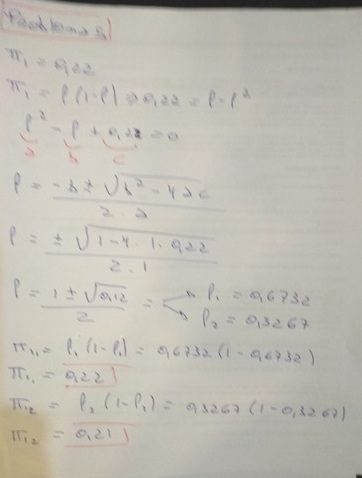 Problema 8
π₁ = 0,22
π₁ = p(1-p) ⇒ 0,22 = p - p²
p² - p + 0,22 = 0
a b c
p = -b ± √b² - 4ac / 2 · a
p = ± √1 - 4 · 1 · 0,22 / 2 · 1
p = 1 ± √0,12 / 2 = p₁ = 0,6732
p₂ = 0,3267
π₁₁ = p₁(1-p₁) = 0,6732(1-0,6732)
π₁₁ = 0,22
π₁₂ = p₂(1-p₂) = 0,3267(1-0,3267)
π₁₂ = 0,21